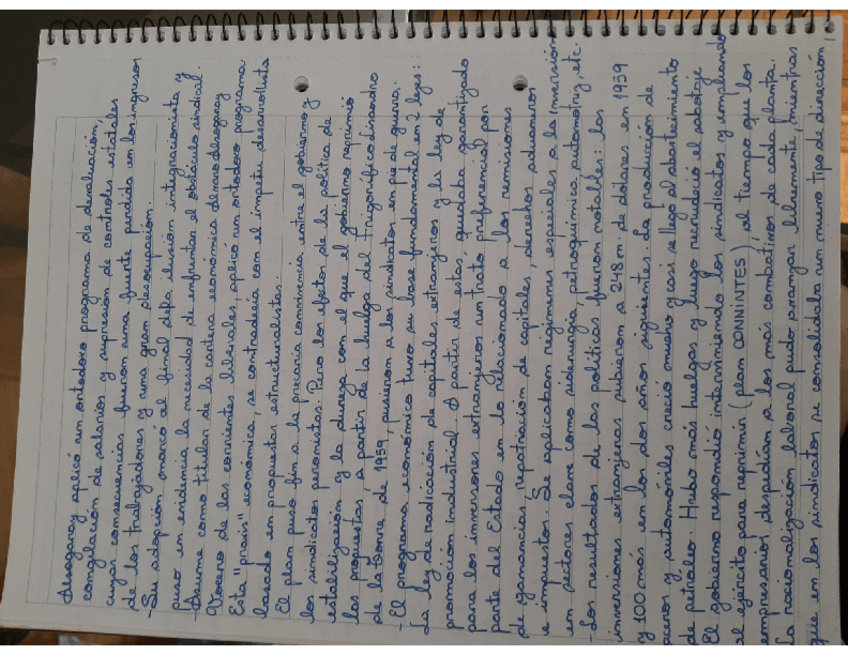 Alsogaray aplicó un ortodoxo programa de devaluación,
congelación de salarios y supresión de controles estatales
cuyas consecuencias fueron una fuerte perdida en los ingresos
de los trabajadores y una gran desocupación.
- Su adopción marcó el final de la ilusión integracionista y
puso en evidencia la necesidad de enfrentar el obstáculo sindical.
- Asume como titular de la cartera económica Alvaro Alsogaray
Vocero de las corrientes liberales, aplicó un ortodoxo programa.
Esta "praxis" económica, se contradecía con el impetu desarrollista
basado en propuestas estructuralistas.
El plan puso fin a la precaria convivencia entre el gobierno y
los sindicatos peronistas. Pero los efectos de la política de
estabilización y la dureza con el que el gobierno reprimió
las propuestas, a partir de la huelga del frigorífico Lisandro
de la Torre de 1959, pusieron a los sindicatos en pie de guerra.
- El programa económico tuvo su base fundamental en 2 leyes:
La ley de radicación de capitales extranjeros y la ley de
promoción industrial. A partir de estas, quedaba garantizado
para los inversores extranjeros un trato preferencial por
parte del Estado en lo relacionado a los remisiones
de ganancias, repatriación de capitales, derechos aduaneros
e impuestos. Se aplicaban regimenes especiales a la inversión
en sectores clave como siderurgia, petroquímica, automotriz, etc.
- Los resultados de las políticas fueron notables: las
inversiones extranjeras subieron a 248 m. de dólares en 1959
y 100 más en los dos años siguientes. La producción de
aceros y automóviles creció mucho y casi se llegó al abastecimiento
de petroleo. Hubo más huelgas y luego recrudeció el sabotaje
El gobierno respondió interviniendo los sindicatos y empleando
el ejército para reprimir (plan CONNINTES) al tiempo que los
empresarios despedían a los más combativos de cada planta.
La racionalización laboral pudo avanzar libremente, mientras
que en los sindicatos se consolidaba un nuevo tipo de dirección